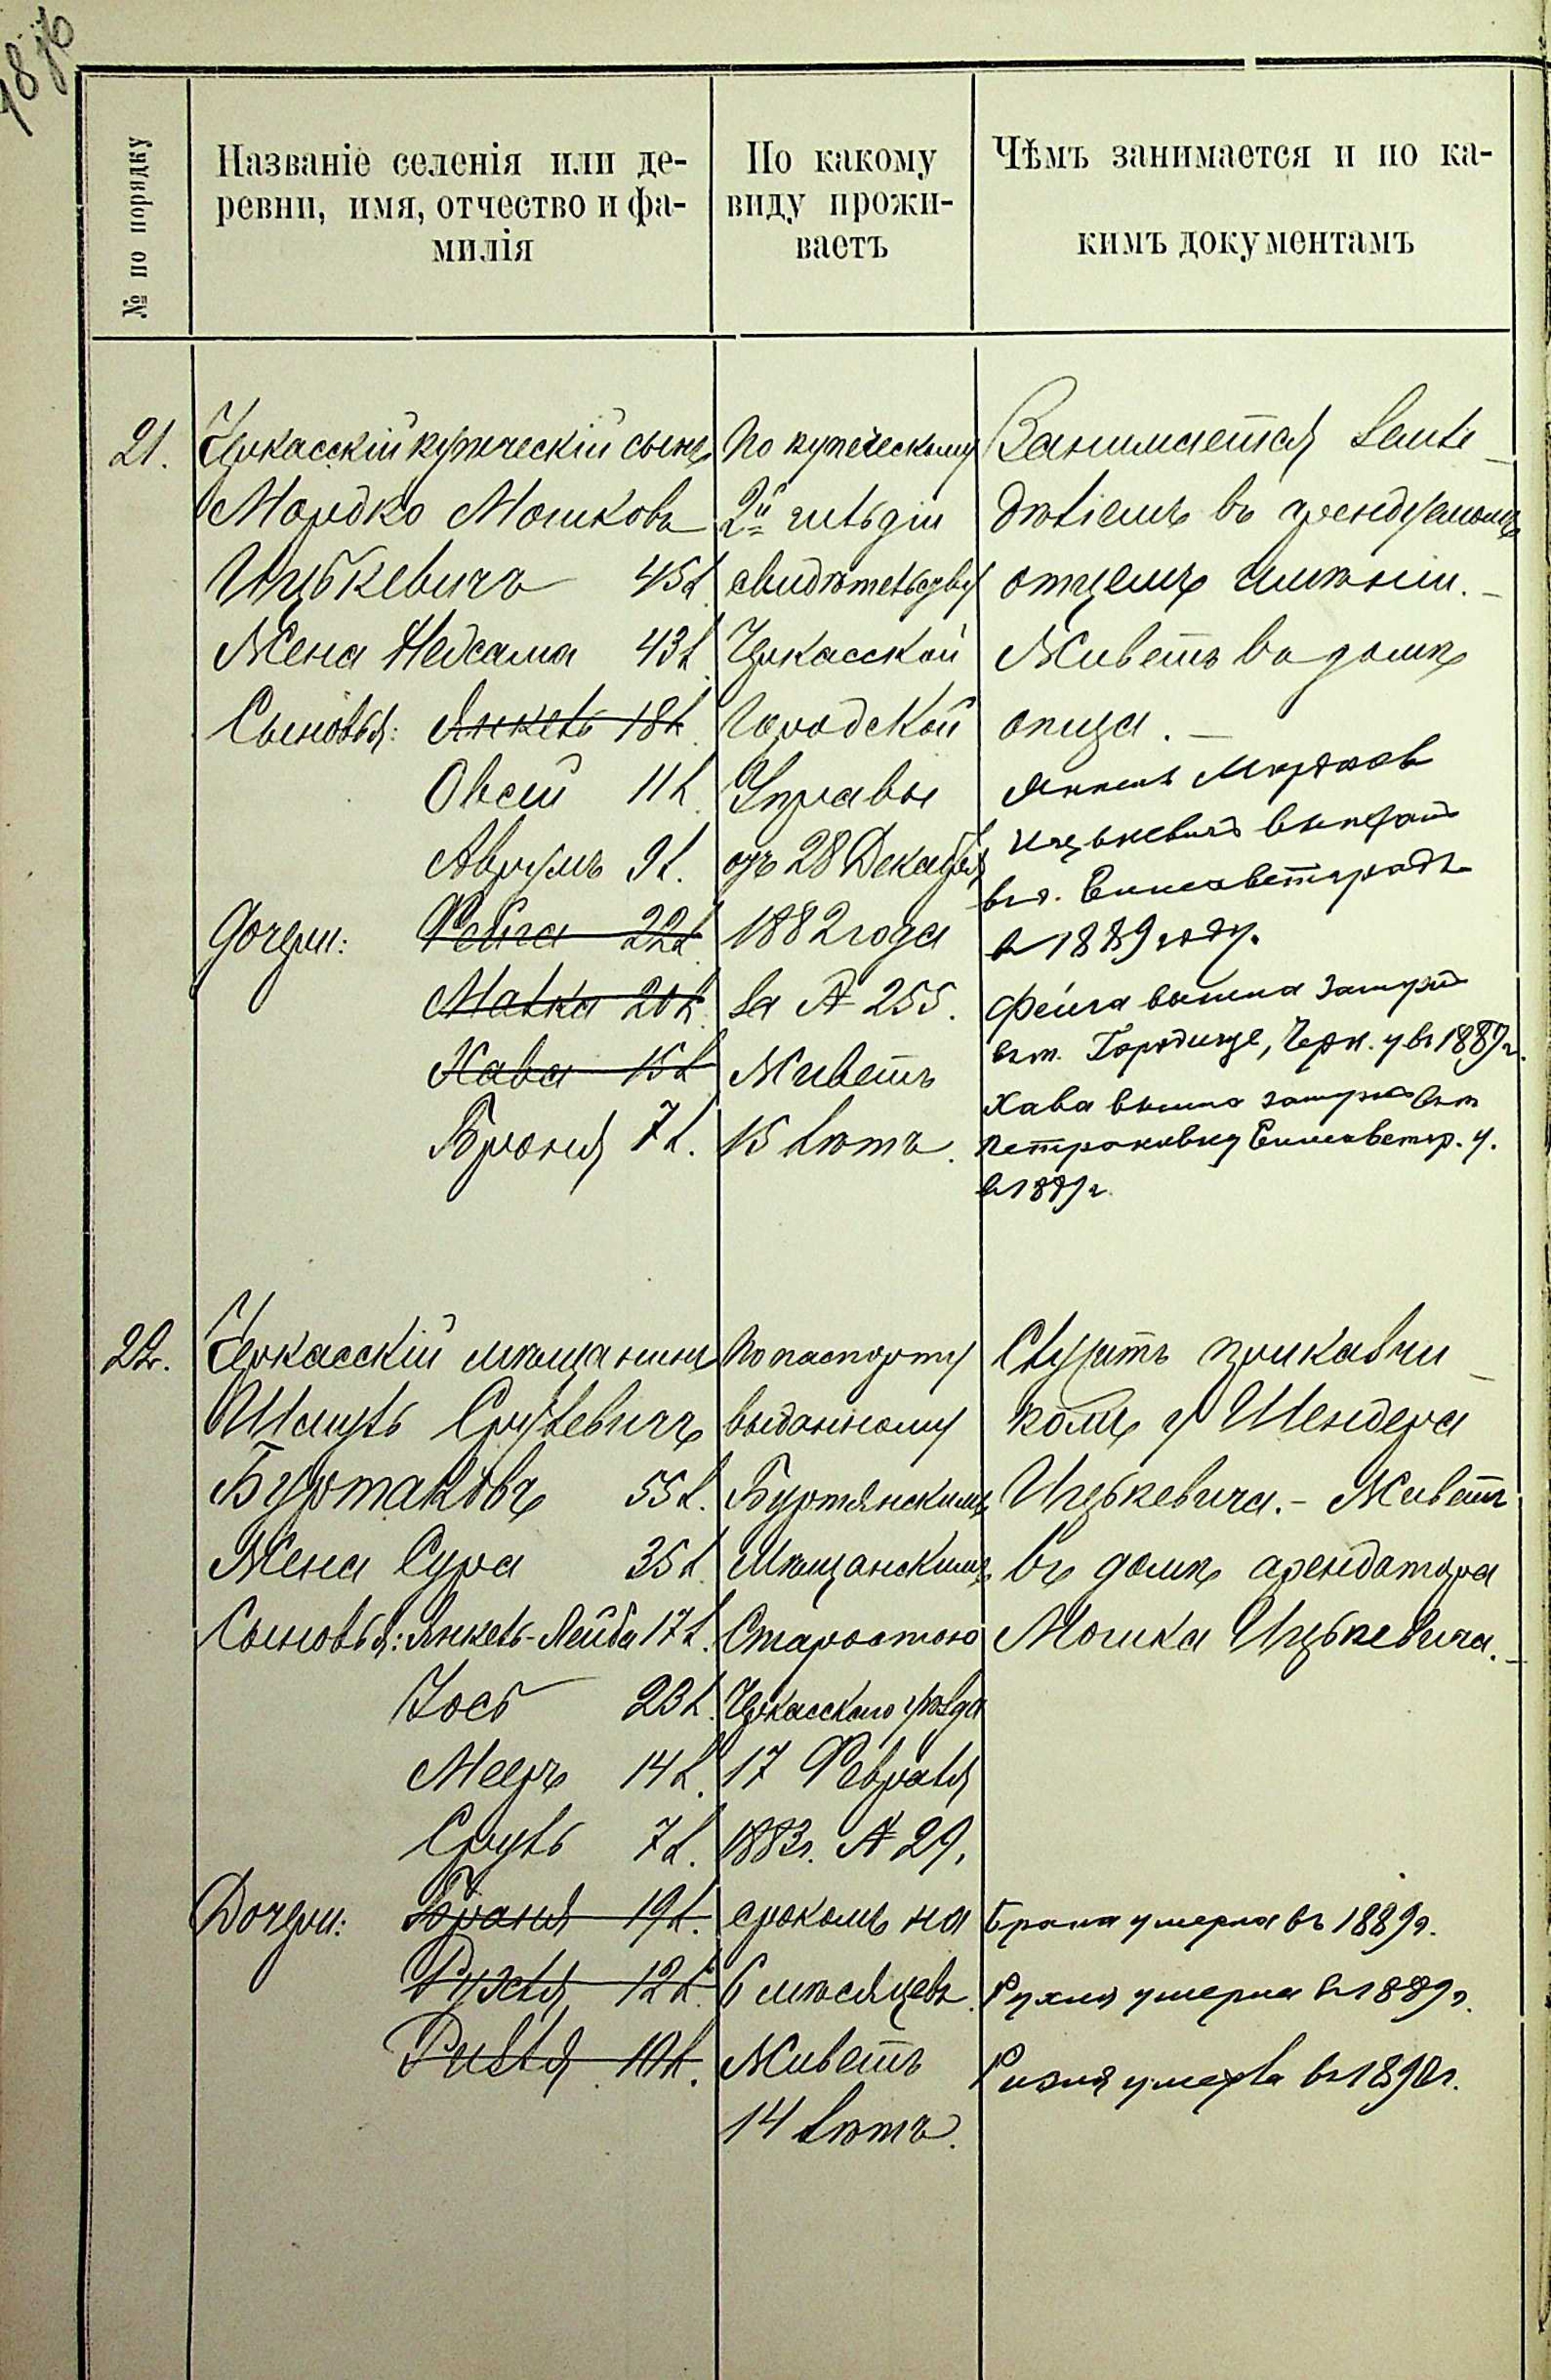 № по порядку
Названіе селенія или де-
ревни, имя, отчество и фа-
милія
По какому
виду прожи-
ваетъ
Чѣмъ занимается и по ка-
кимъ документамъ
21.
Черкасскій купеческій сынъ
Мордко Мошковъ
Ицькевичъ 45 л.
Жена Недсама 43 л.
Сыновья: Янкель 18 л.
Овсій 11 л.
Аврумъ 9 л.
Дочери: Фейга 22 л.
Малка 20 л.
Хава 15 л.
Броня 7 л.
По купеческому
2й гильдіи
свидѣтельству
Черкасской
Городской
Управы
отъ 28 Декабря
1882 года
за № 255.
Живетъ
15 лѣтъ.
Занимается земле-
дѣліемъ въ арендуемомъ
отцемъ имѣніи. -
Живетъ въ домѣ
отца. -
Янкель Мордков
Ицькевичъ выехалъ
въ г. Елисаветградъ
в 1889 году.
Фейга вышла замужъ
въ м. Городище, Черк. у въ 1887 г.
Хава вышла замужъ въ м
Петроковку Елисаветгр. у.
в 1889 г.
22.
Черкасскій мѣщанинъ
Шмуль Срулевичъ
Буртаковъ 55 л.
Жена Сура 35 л.
Сыновья: Янкель-Лейба 17 л.
Іось 23 л.
Мееръ 14 л.
Сруль 7 л.
Дочери: Браня 19 л.
Рухля 12 л.
Ризля 10 л.
По паспорту
выданному
Буртянскимъ
Мѣщанскимъ
Старостою
Черкасскаго уѣзда
17 Февраля
1883 г. № 29,
срокомъ на
6 мѣсяцевъ.
Живетъ
14 лѣтъ.
Служитъ прикащи-
комъ у Шендера
Ицькевича. - Живетъ
въ домѣ арендатора
Мошка Ицькевича. -
Брана умерла въ 1889 г.
Рухля умерла в 1889 г.
Ризля умерла въ 1890 г.